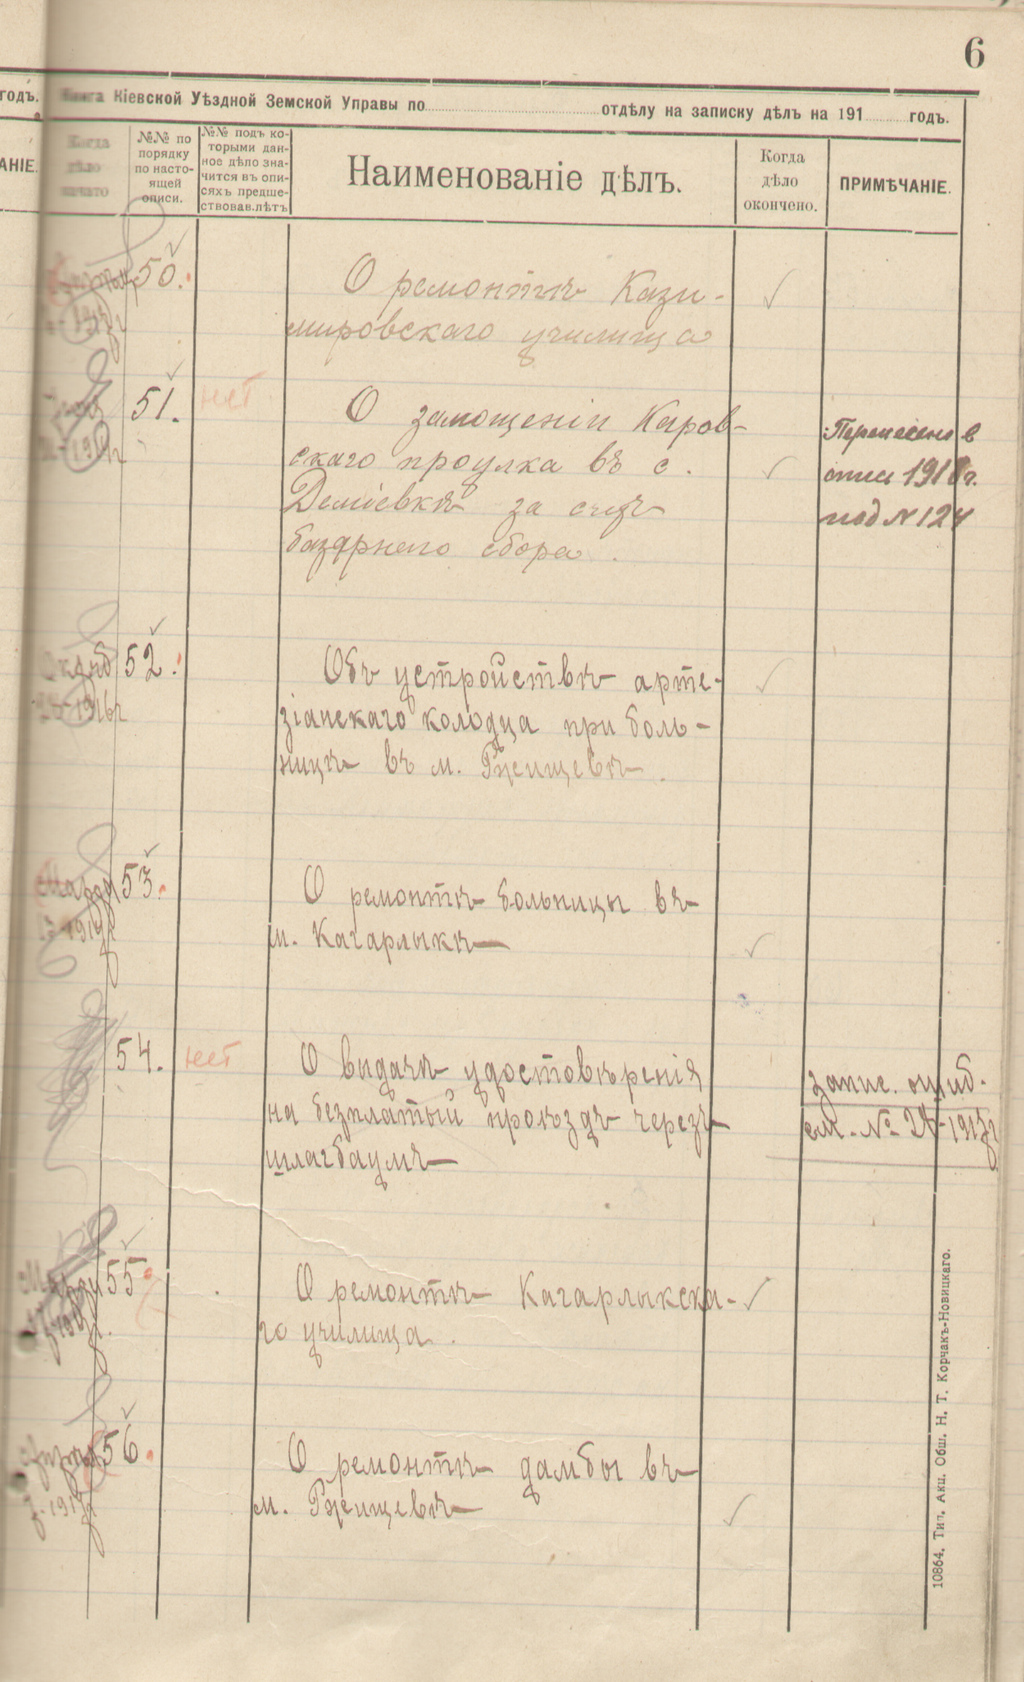 6
годъ. Книга Кіевской Уѣздной Земской Управы по отдѣлу на записку дѣлъ на 191 годъ.
АНІЕ.
Когда
дѣло
начато
№№ по
порядку
по насто-
ящей
описи.
№№ подъ ко-
торыми дан-
ное дѣло зна-
чится въ опи-
сяхъ предше-
ствовав.лѣтъ
Наименованіе дѣлъ.
Когда
дѣло
окончено.
ПРИМѢЧАНІЕ.
50.
О ремонтѣ Кази-
мировскаго училища
51. нет
О замощеніи Киров-
скаго проулка въ с.
Деміевкѣ за счетъ
базарнаго сбора.
Перенесено в
опись 1918 г.
под N 124
1916 г.
52.
Объ устройствѣ арте-
зіанскаго колодца при боль-
ницѣ въ м. Ржищевѣ.
Марта
53.
О ремонтѣ больницы въ
м. Кагарлыкѣ
54. нет
О выдачѣ удостовѣренія
на безплатый проѣздъ черезъ
шлагбаумъ
запис. ошиб.
см. № 24-1917 г
Марта
55
О ремонтѣ Кагарлыкска-
го училища.
1917 г
56.
О ремонтѣ дамбы въ
м. Ржищевѣ
10864. Тип. Акц. Общ. Н. Т. Корчакъ-Новицкаго.